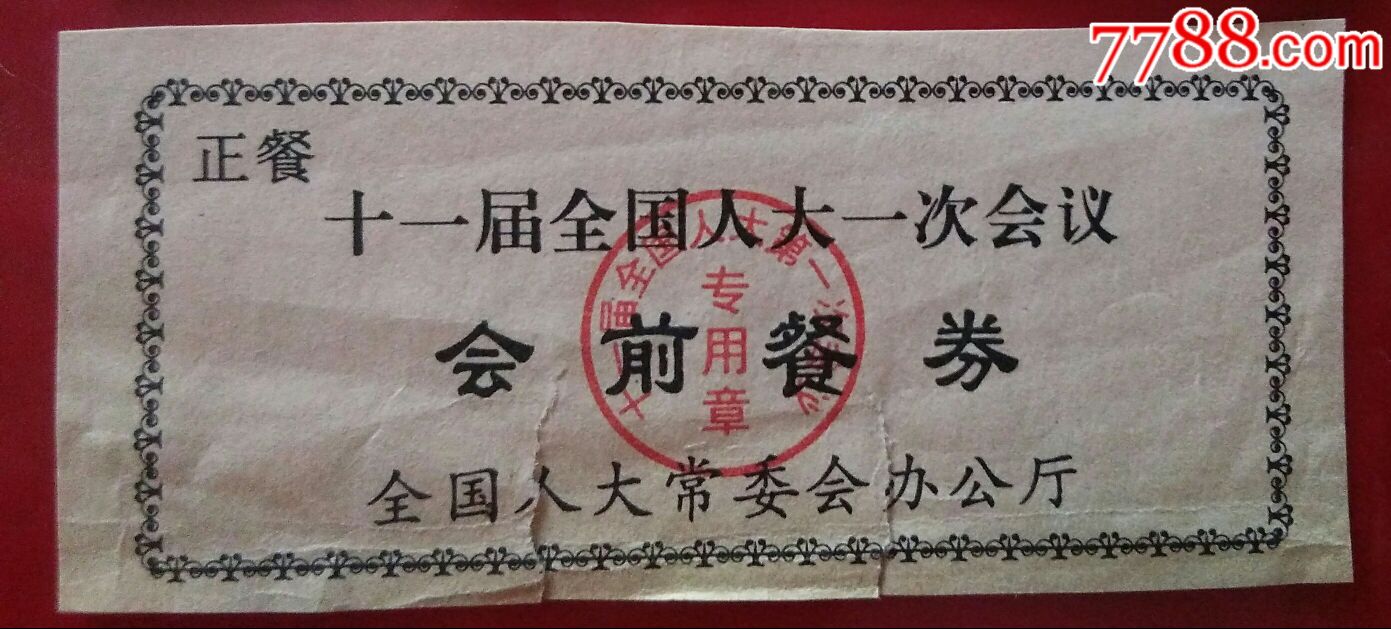 7788.com
正餐
十一届全国人大一次会议
会前餐券
全国人大常委会办公厅
十一届全国人大第一次会议
专用章